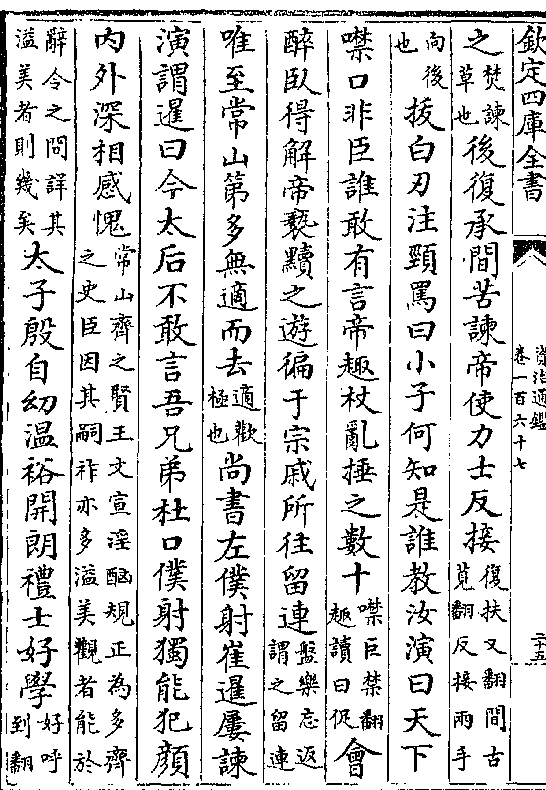 欽定四庫全書
資治通鑑
卷一百六十七
二十五
之焚諫草也後復承間苦諫帝使力士反接復扶又翻間古莧翻反接兩手
向後也拔白刃注頸罵曰小子何知是誰教汝演曰天下
噤口非臣誰敢有言帝趣杖亂捶之數十噤巨禁翻趣讀曰促會
醉臥得解帝褻黷之遊徧于宗戚所往留連盤樂忘返謂之留連
唯至常山第多無適而去適歡極也尚書左僕射崔暹屢諫
演謂暹曰今太后不敢言吾兄弟杜口僕射獨能犯顔
内外深相感愧常山齊之賢王文宣淫酗規正為多齊之史臣因其嗣祚亦多溢美觀者能於
辭令之間詳其溢美者則幾矣太子殷自幼温裕開朗禮士好學好呼到翻